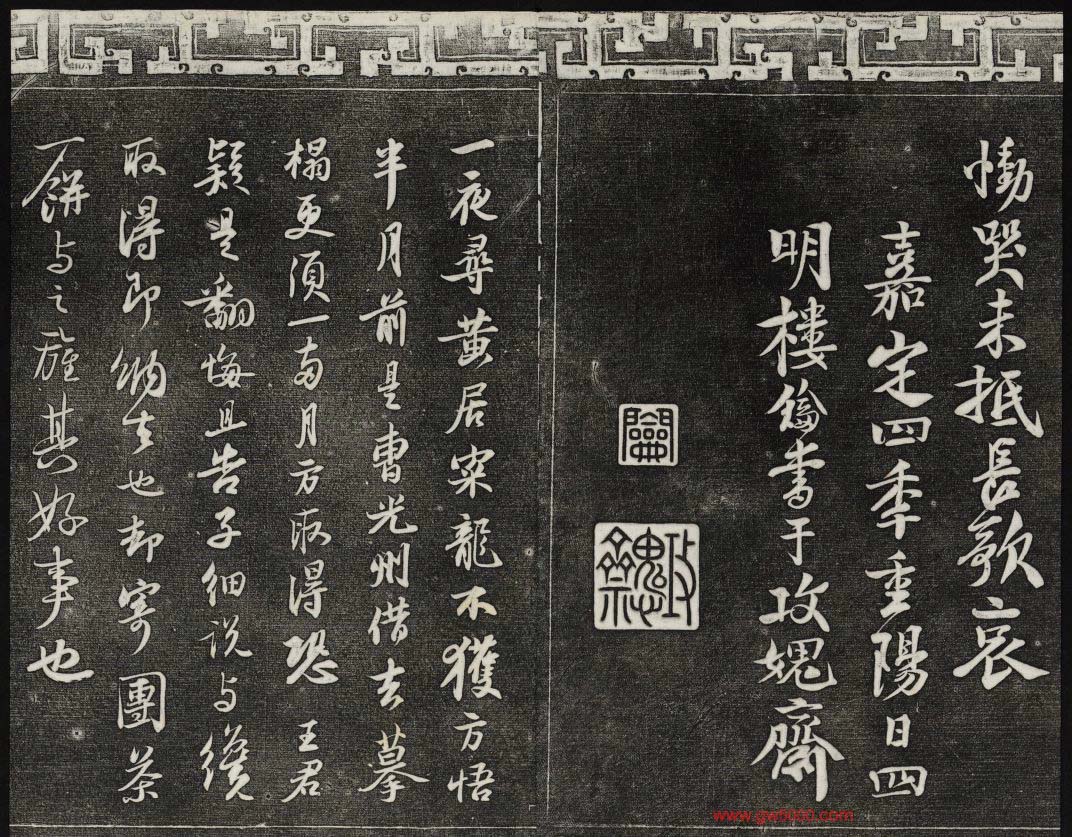 慟哭未抵長歌哀
嘉定四季重陽日四
明樓鑰書于攻媿齋
攻媿齋
一夜尋黃居寀龍不獲方悟
半月前是曹光州借去摹
榻更須一兩月方取得恐王君
疑是翻悔且告子細説与纔
取得即納去也却寄團茶
一餅与之旌其好事也
www.gw5000.com